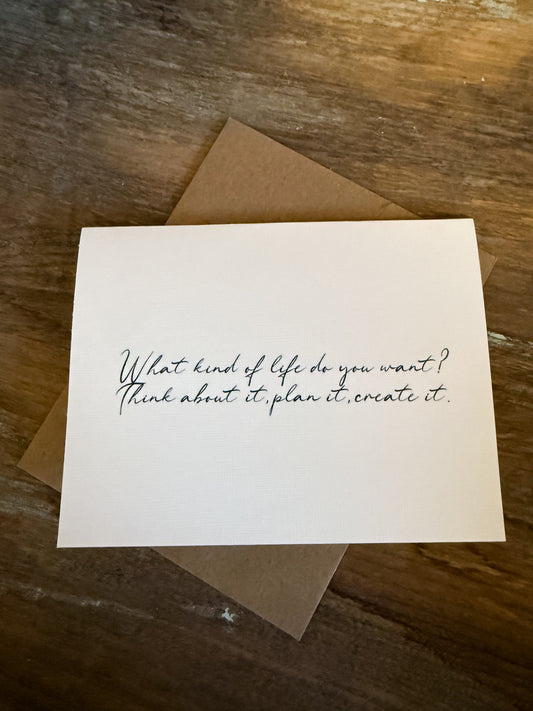 What kind of life do you want?
Think about it, plan it, create it.